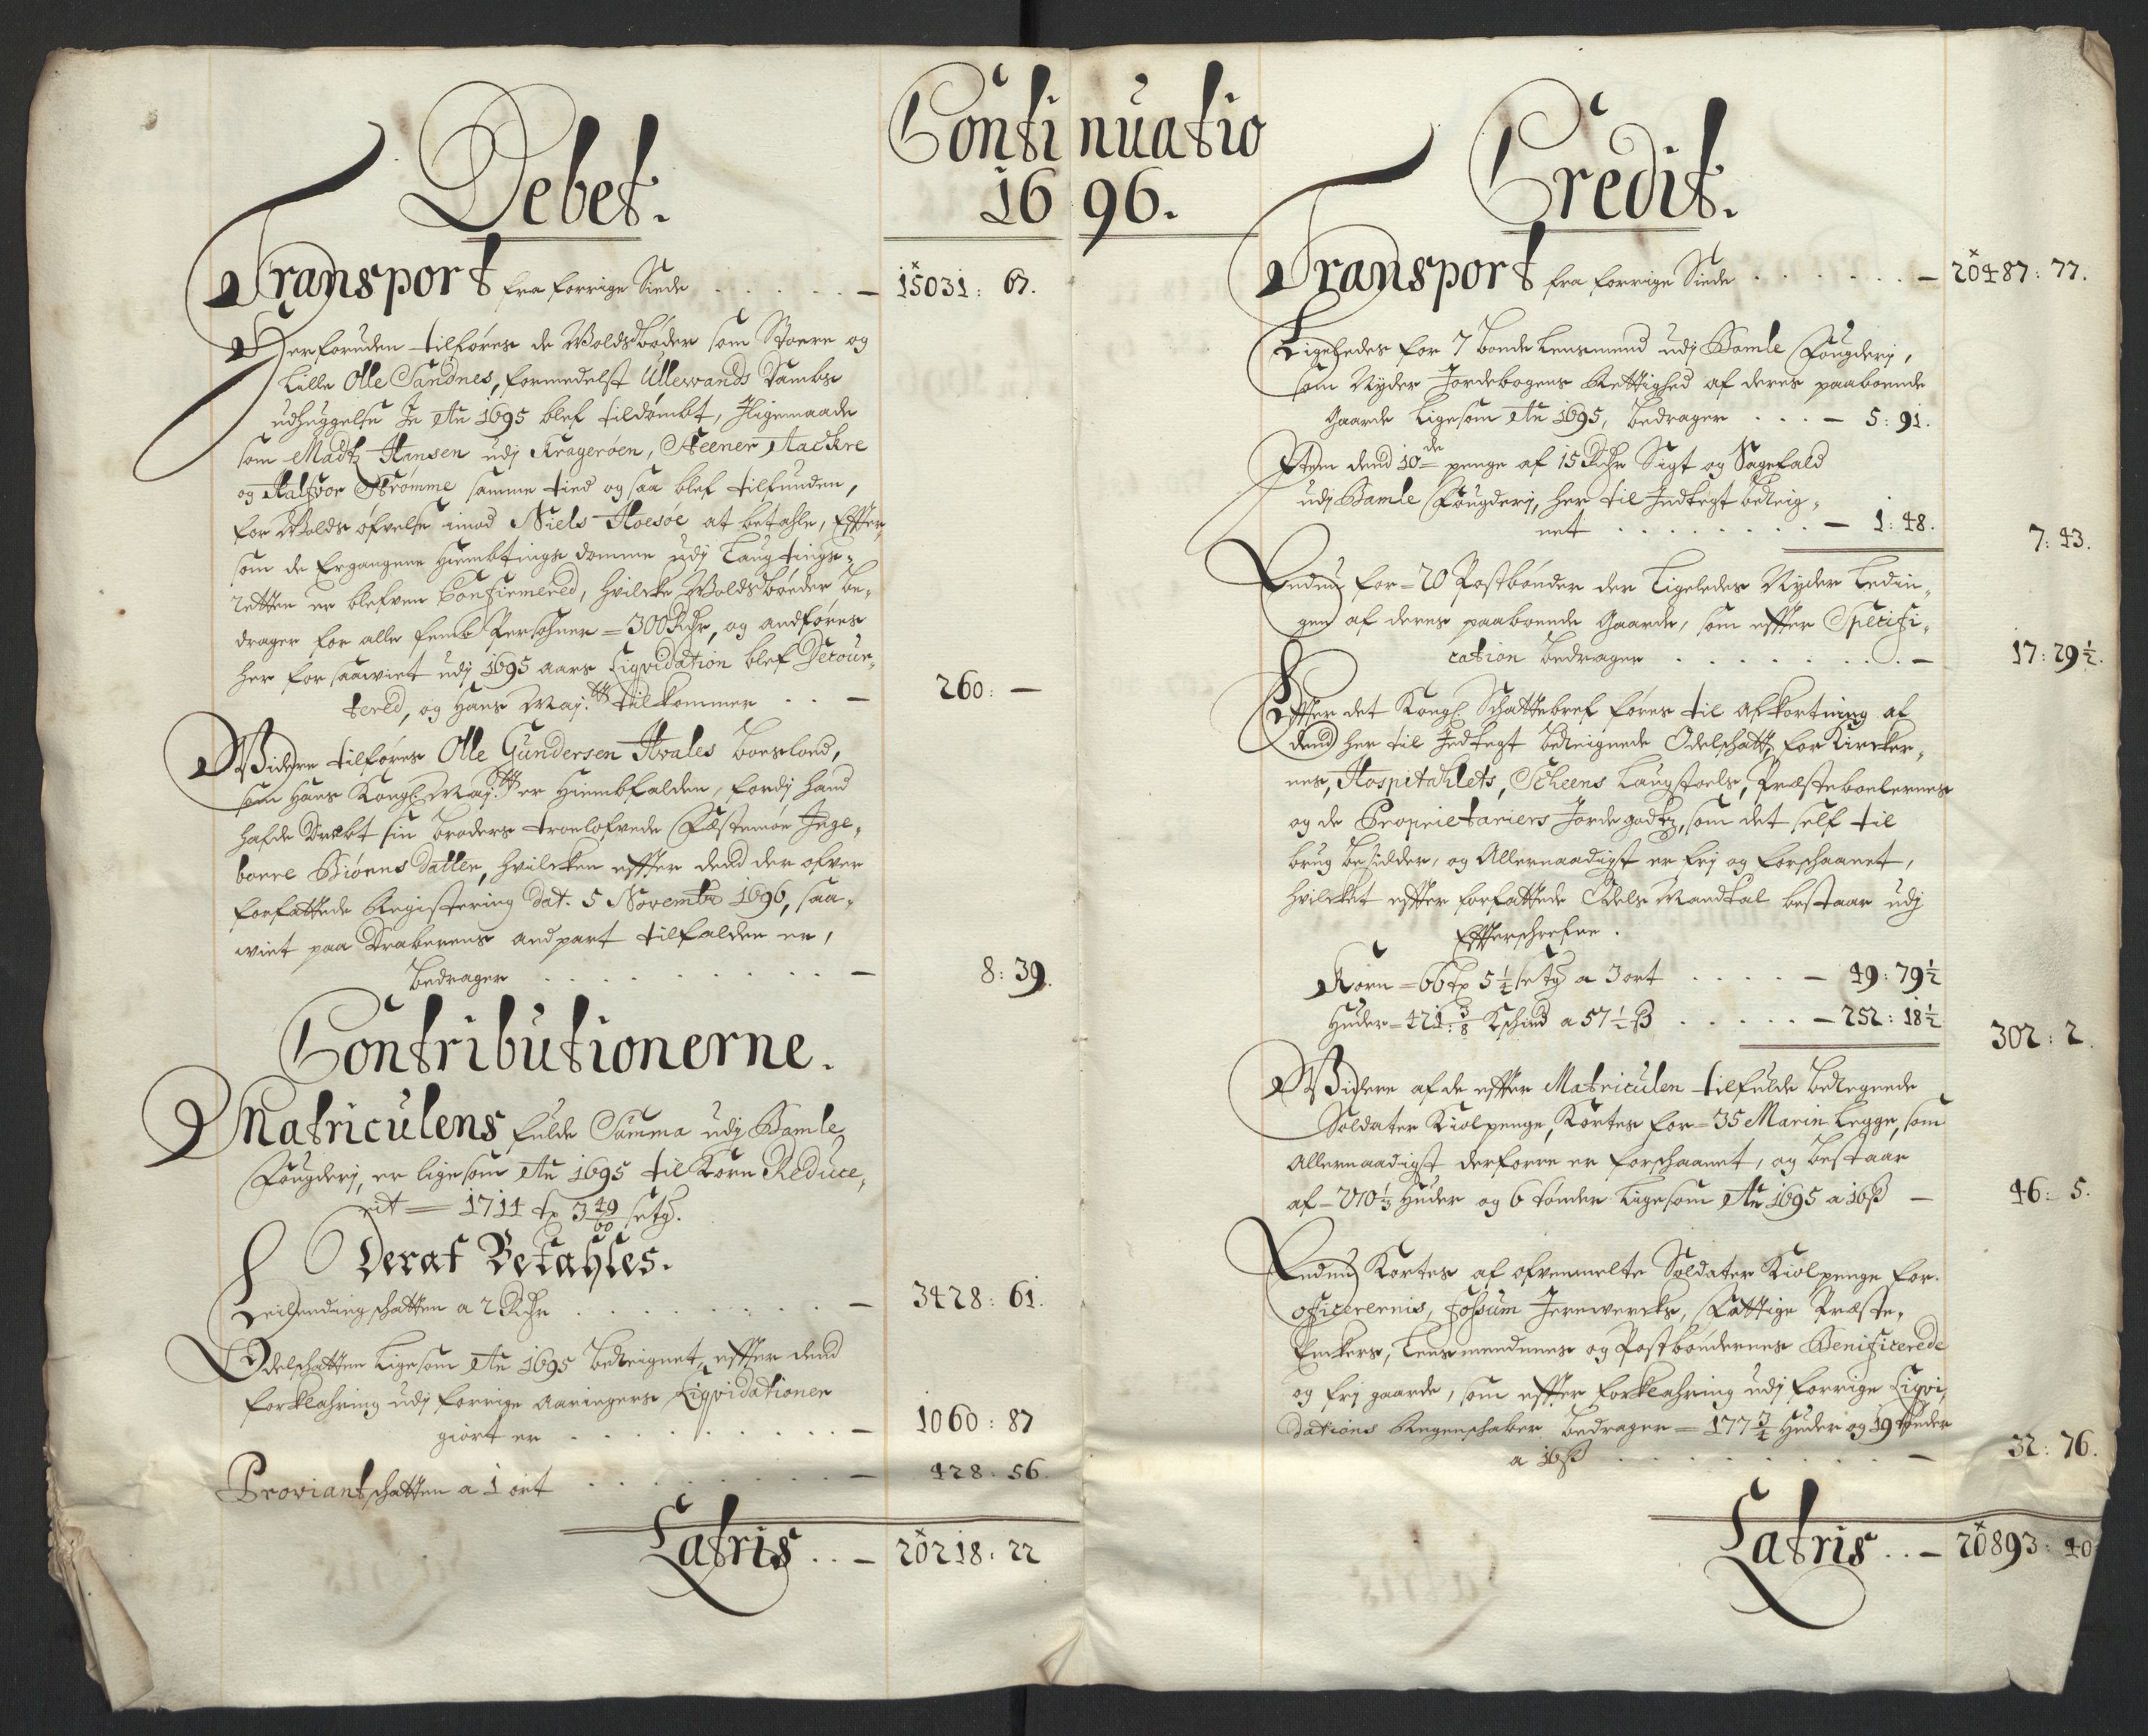 Continuatio
1696.
Debet.
Transport fra forrige Siede . . . . . — 15031: 67.
Herforuden tilføres de Woldsbøder som Stoere og
Lille Olle Sandnes, formedelst Ullewands Dambs
udhuggelse In Ao 1695 blef tildømbt, Iligemaade
som Madtz Hansen udj Kragerøen, Steener Aackre
og Halfvor Strømme samme tied og saa blef tilfunden,
for Wolds øfvelse imod Niels Hoesøe at betahle, Effter
som de Ergangene Hiembtings domme udj Laugtings-
retten er blefven Confirmered, hvilcke Woldsbøder be-
drager for alle femb Persohner = 300 Rdr, og andføres
her for saawiet udj 1695 aars Liqvidation blef Decour-
tered, og Hans Maj:tt tilkommer . . — 260: —
Widere tilføres Olle Gundersen Hvales boeslod,
som Hans Kongl: Maj:tt er Hiembfalden, fordj hand
hafde Dræbt sin broders troelofvede Fæstemøe Inge-
borre Biørns Datter, hvilcken effter dend der ofver
forfattede Registering Dat. 5 Novembr 1696, saa-
wiet paa Draberens andpart tilfalden er,
Bedrager . . . . . . . . . — 8: 39.
Contributionerne.
Matriculens fulde Summa udj Bamle
Fougderj, er ligesom Ao 1695 til Korn Reduce-
rit = 1714 tr 3 49/60 setg.
Deraf Betahles.
Leilendingschatten a 2 Rdr . . . . . . . — 3428: 61.
Odelschatten Ligesom Ao 1695 Bereignet, effter dend
forklahring udj forrige aaringers Liqvidationer
giort er . . . . . . . . — 1060: 87
Proviantschatten a 1 ort . . . . . . . — 428: 56.
Latris . . — 20218: 22
Credit.
Transport fra forrige Siede . . . . . . . — 20487: 77.
Ligeledes for 7 bonde Lensmend udj Bamle Fougderj,
som Nyder Jordebogens Rettighed af deres paaboende
Gaarde Ligesom Ao 1695, bedrager . . . — 5: 91.
Item dend 10de penge af 15 Rdr Sigt og Sagefald
udj Bamle Fougderj, her til Indtegt bereig-
net . . . . . . . . — 1: 48.
7: 43.
Endnu for = 20 Postbønder der Ligeledes Nyder Ledin-
gen af deres paaboende Gaarde, som effter Specifi-
cation bedrager . . . . . . . . — 17: 29 1/2.
Effter det Kongl: Schattebref føres til afkortning af
dend her til Indtegt Bereignede Odelschatt, for Kircker-
nes, Hospitahlets, Scheens Laugstoels, Præsteboelernes
og de Proprietariers Jordegodtz, som det self til
brug besidder, og Allernaadigst er frj og forschaanet,
hvilcket effter forfattede Odels Mandtal bestaar udj
Effterschrefne.
Korn = 66 tr 5 1/4 setg a 3 ort . . . . . — 49: 79 1/2
Huder = 421 3/8 Kschind a 57 1/2 ß . . . . . — 252: 18 1/2
302: 2.
Widere af de effter Matriculen tilfulde bereignede
Soldater Kiolpenge, Kortes for = 35 Marin Legge, som
Allernaadigst derforre er forschaanet, og bestaar
af = 270 1/3 Huder og 6 tønder Ligesom Ao 1695 a 16 ß — 46: 5.
Endnu Kortes af ofvenmelte Soldater Kiolpenge for
officerernis, Fossum Jernwercks, Fattige Præste-
Enckers, Lensmendenes og Postbøndernes Benificerede
og frj gaarde, som effter forklahring udj forrige Liqvi-
dations Regenschaber bedrager = 177 3/4 Huder og 19 tønder
a 16 ß . . . . . . . . . — 32: 76.
Latris . . — 20893: 40